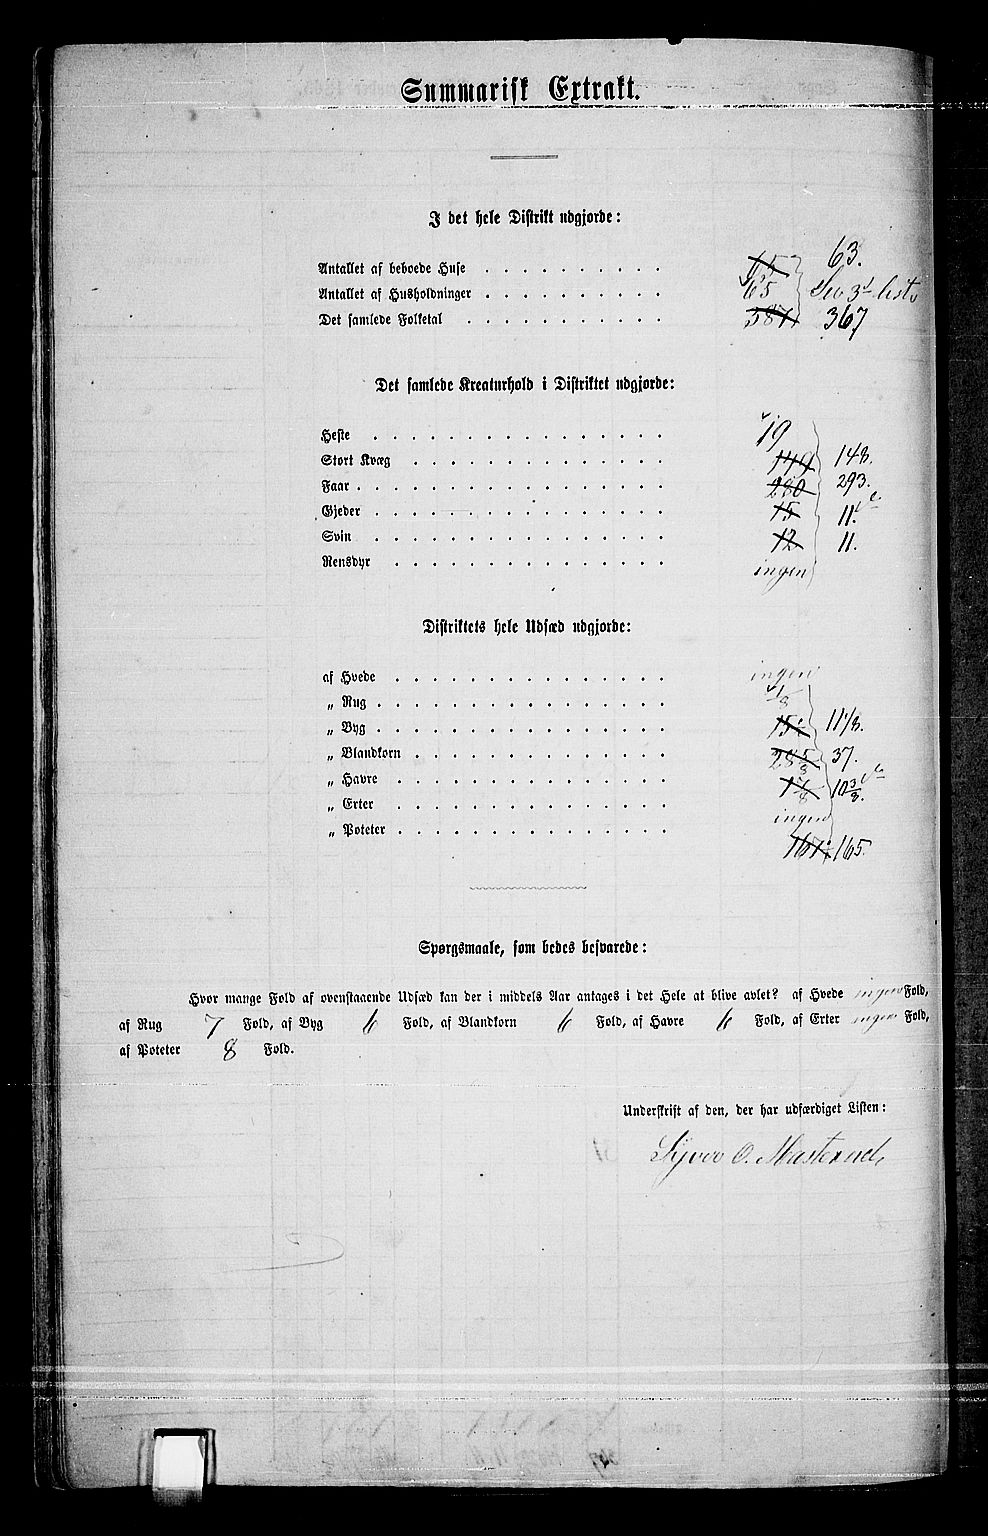 Summarisk Extrakt.
I det hele Distrikt udgjorde:
Antallet af beboede Huse 63.
Antallet af Husholdninger 65
Det samlede Folketal 387 367
Det samlede Kreaturhold i Distriktet udgjorde:
Heste 19
Stort Kvæg 149 148.
Faar 280 293.
Gjeder 15 11.
Svin 12 11.
Rensdyr ingen
Distriktets hele Udsæd udgjorde:
af Hvede ingen
„ Rug 1/8
„ Byg 11 1/8.
„ Blandkorn 28 5/8 37.
„ Havre 10 3/8.
„ Erter ingen
„ Poteter 165.
Spørgsmaale, som bedes besvarede:
Hvor mange Fold af ovenstaaende Udsæd kan der i middels Aar antages i det Hele at blive avlet? af Hvede ingen Fold,
af Rug 7 Fold, af Byg 6 Fold, af Blandkorn 6 Fold, af Havre 6 Fold, af Erter ingen Fold,
af Poteter 8 Fold.
Underskrift af den, der har udfærdiget Listen:
O. Masterud